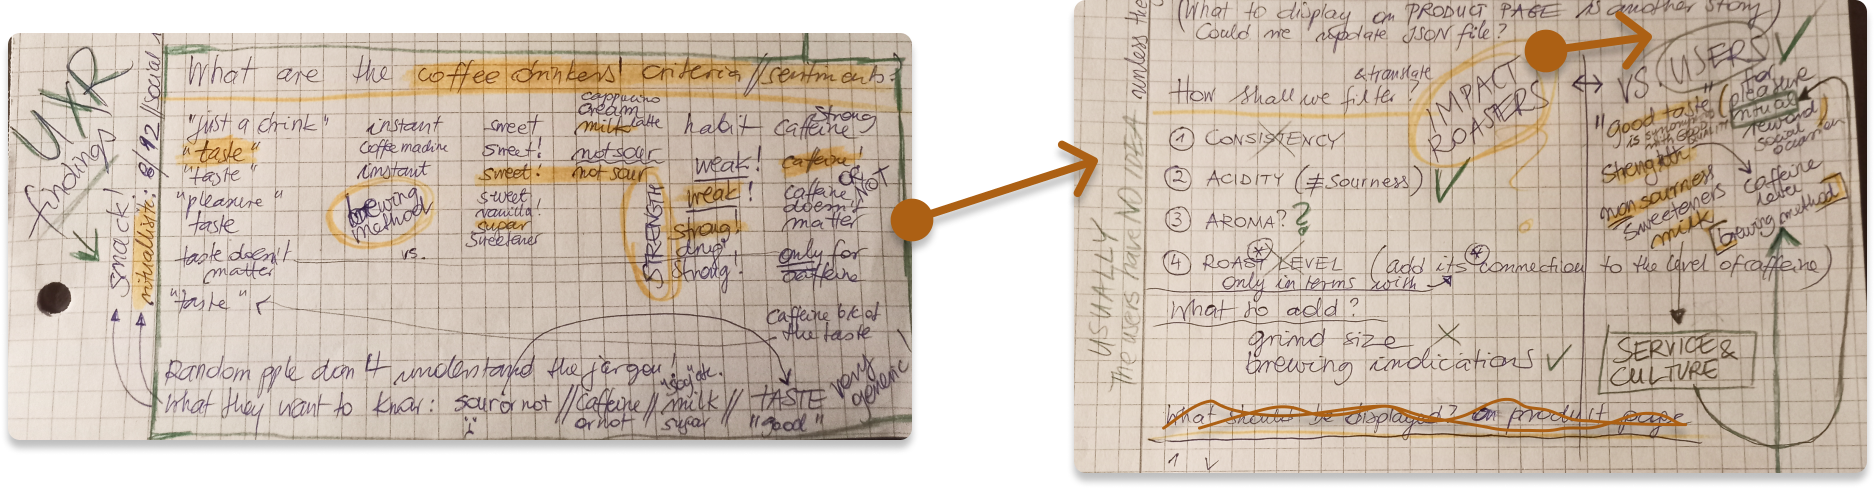 UXR
findings
smack!
ritualistic: 8/92 // social
What are the coffee drinkers' criteria // sentiments?
"just a drink"
"taste"
"taste"
"pleasure"
taste
taste doesn't
matter
"taste"
instant
coffee machine
instant
brewing
method
vs.
sweet
sweet!
sweet!
sweet
vanilla!
sugar
sweetener
cappucino
cream
milk latte
not sour
not sour
STRENGTH
habit
weak!
weak!
strong!
drug!
strong!
strong
caffeine
caffeine!
OR NOT
caffeine
doesn't
matter
only for
caffeine
caffeine b/c of
the taste
Random pple don't understand the jargon!
What they want to know: sour or not // caffeine // milk // TASTE
or not sugar "good"
very
generic
(What to display on PRODUCT PAGE is another story)
Could we update JSON file?
USUALLY
The users have NO IDEA unless the
& translate
How shall we filter?
1 CONSISTENCY
2 ACIDITY (≠ sourness)
3 AROMA?
?
4 ROAST LEVEL (add its connection to the level of caffeine)
only in terms with
What to add?
grind size X
brewing indications ✓
What should be displayed? on product page
IMPACT
ROASTERS
VS.
USERS
"good taste"
is synonymous
Strength
non sourness
sweeteners
milk
(for
pleasure
ritual
reward
social
occasion
caffeine
level
brewing method
SERVICE &
CULTURE